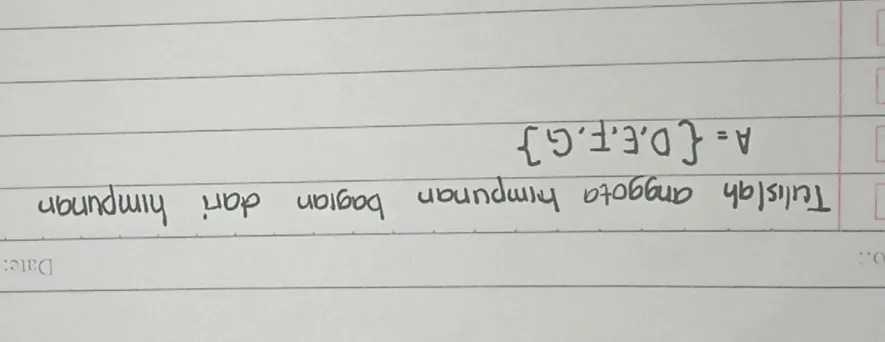 o.:
Date:
Tulislah anggota himpunan bagian dari himpunan
A = { D, E, F, G }